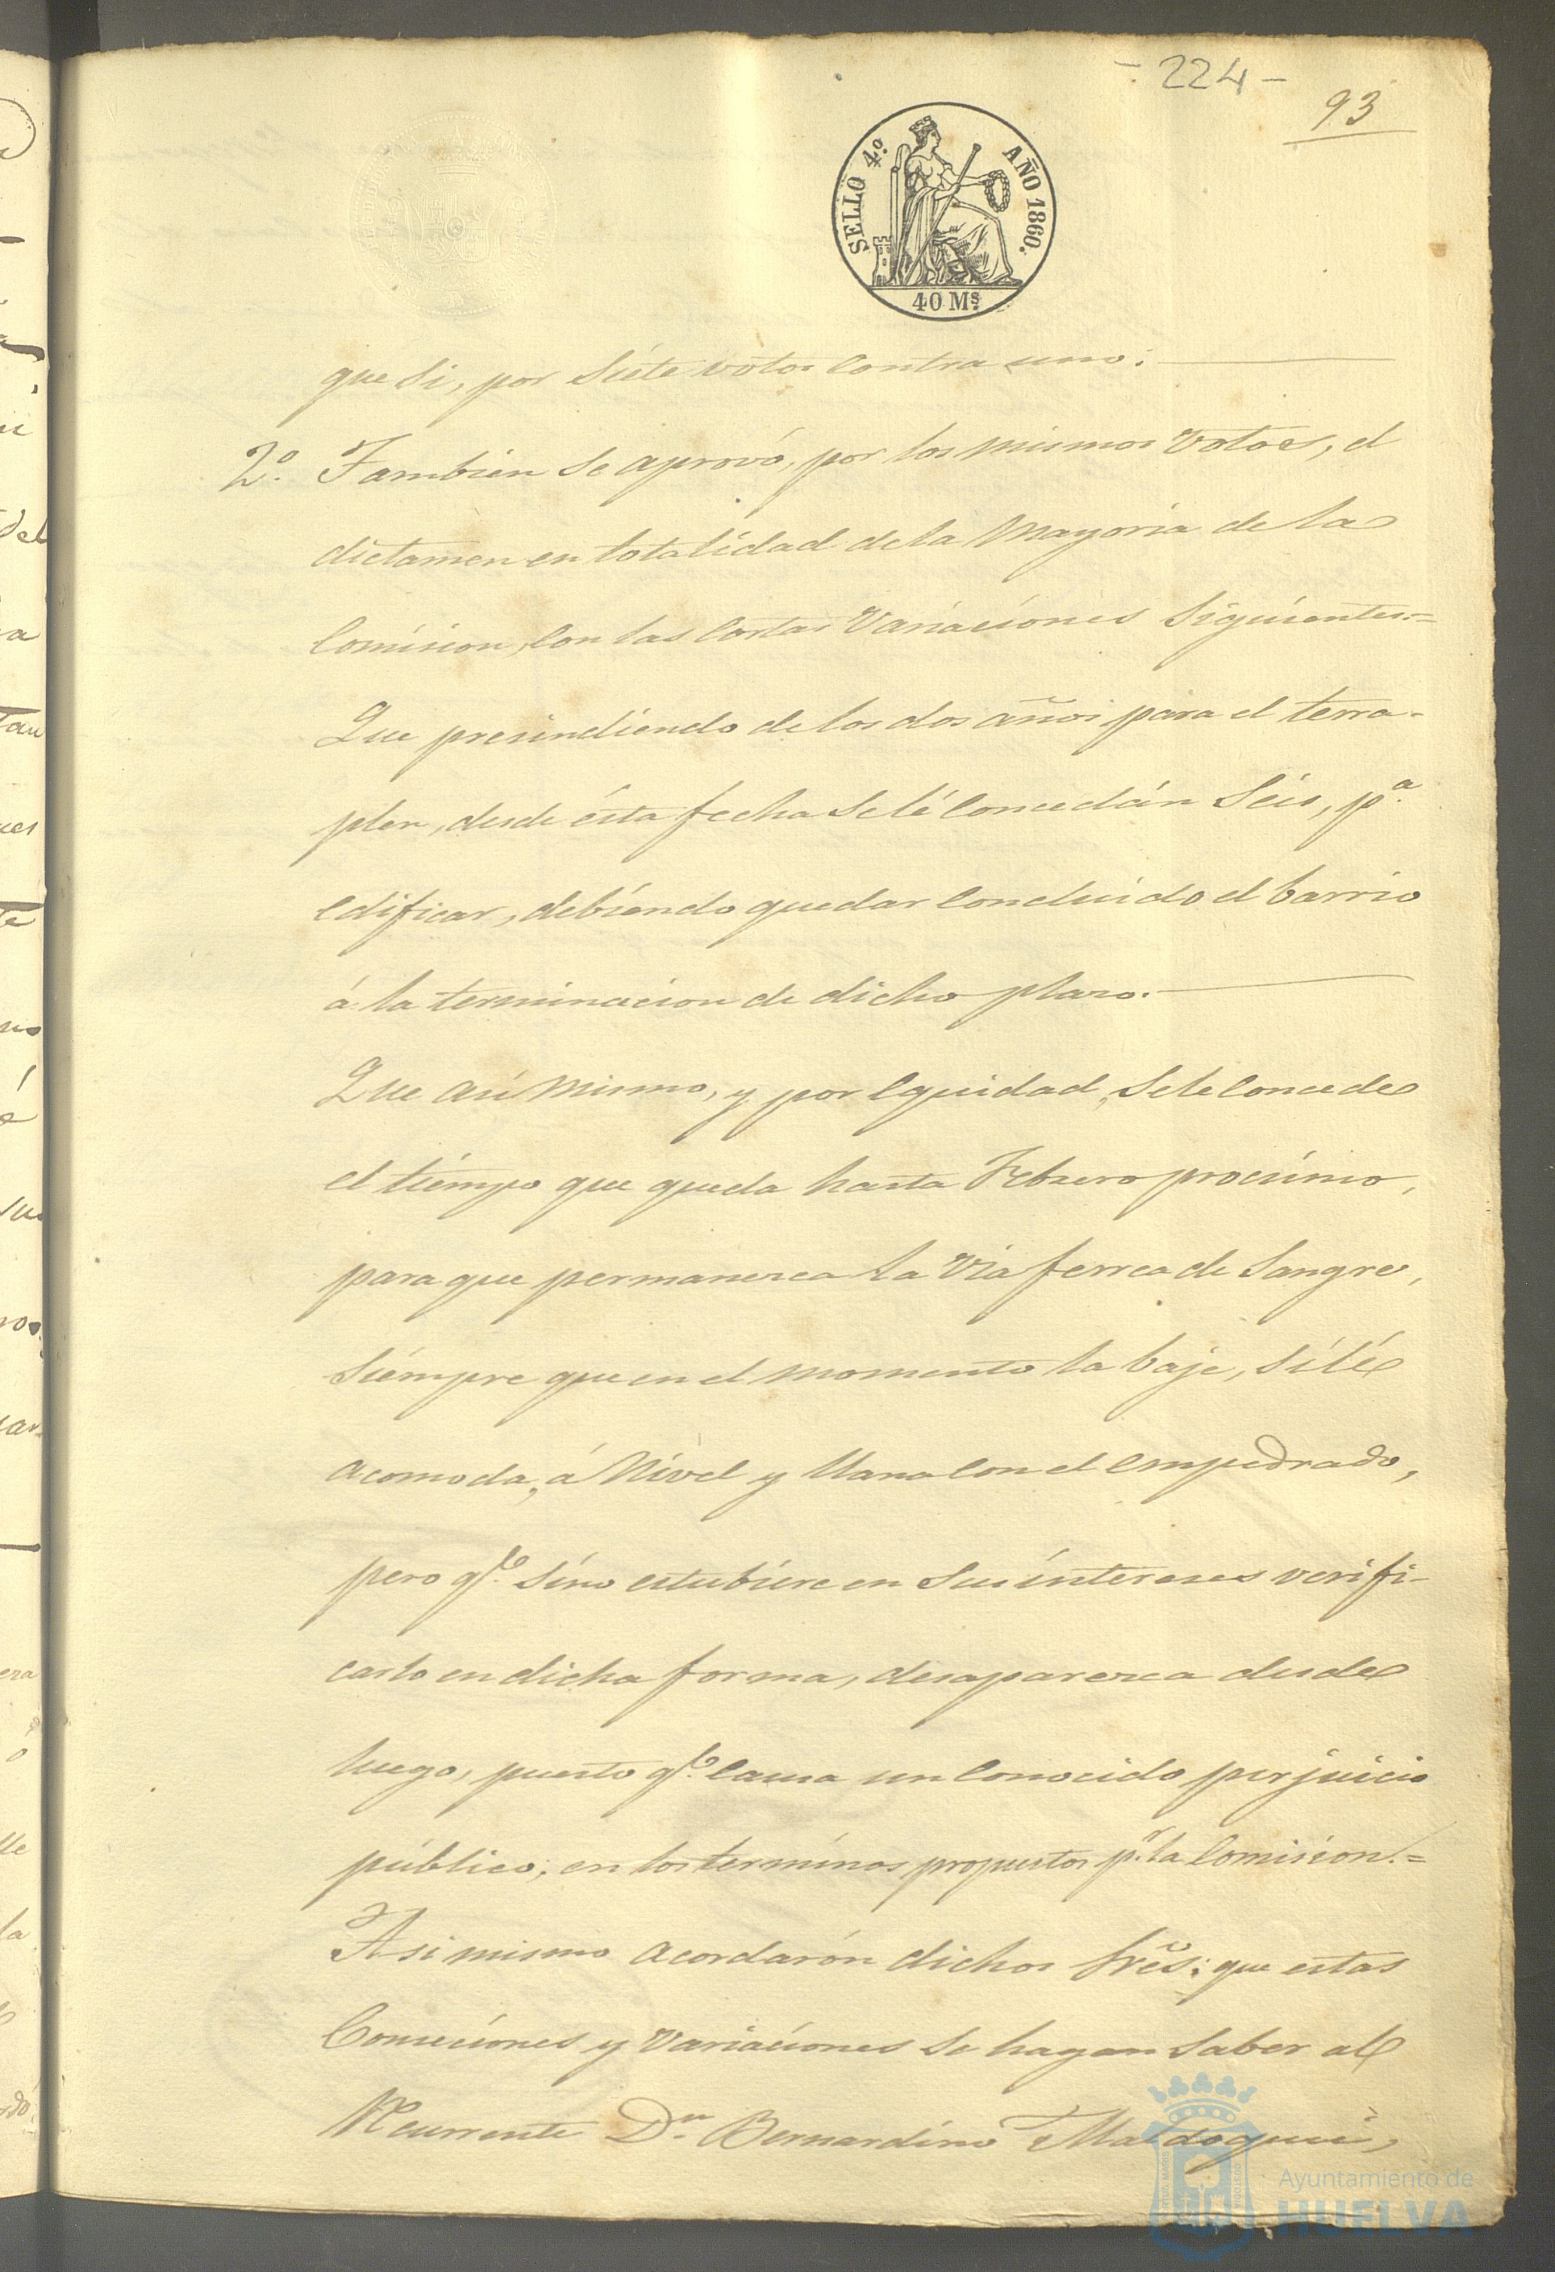 - 224 -
93
SELLO 4º. AÑO 1860.
40 Ms.
que si, por siete votos contra uno.
2º. Tambien se aprovó, por los mismos votos, el
dictamen en totalidad de la Mayoria de la
Comision, con las cortas variaciones siguientes.=
Que presindiendo de los dos años para el terra-
plen, desde ésta fecha se lé concedán seis, pª.
edificar, debiendo quedar concluido el barrio
á la terminacion de dicho plazo.
Que así mismo, y por equidad, se le concede
el tiémpo que queda hasta Febrero procsimo,
para que permanezca la via ferrea de sangre,
siémpre que en el momento la baje, si lé
acomoda, á nivel y llana con el empedrado,
pero qe. sino estubiere en sus intereses verifi-
carlo en dicha forma, desaparezca desde
luego, puesto qe. causa un conocido perjuicio
público, en los terminos propuestos pr. la Comision.=
Asi mismo acordarón dichos Sres. que estas
Concesiones y variaciones se hagan saber al
Recurrente Dn. Bernardino
Ayuntamiento de
HUELVA